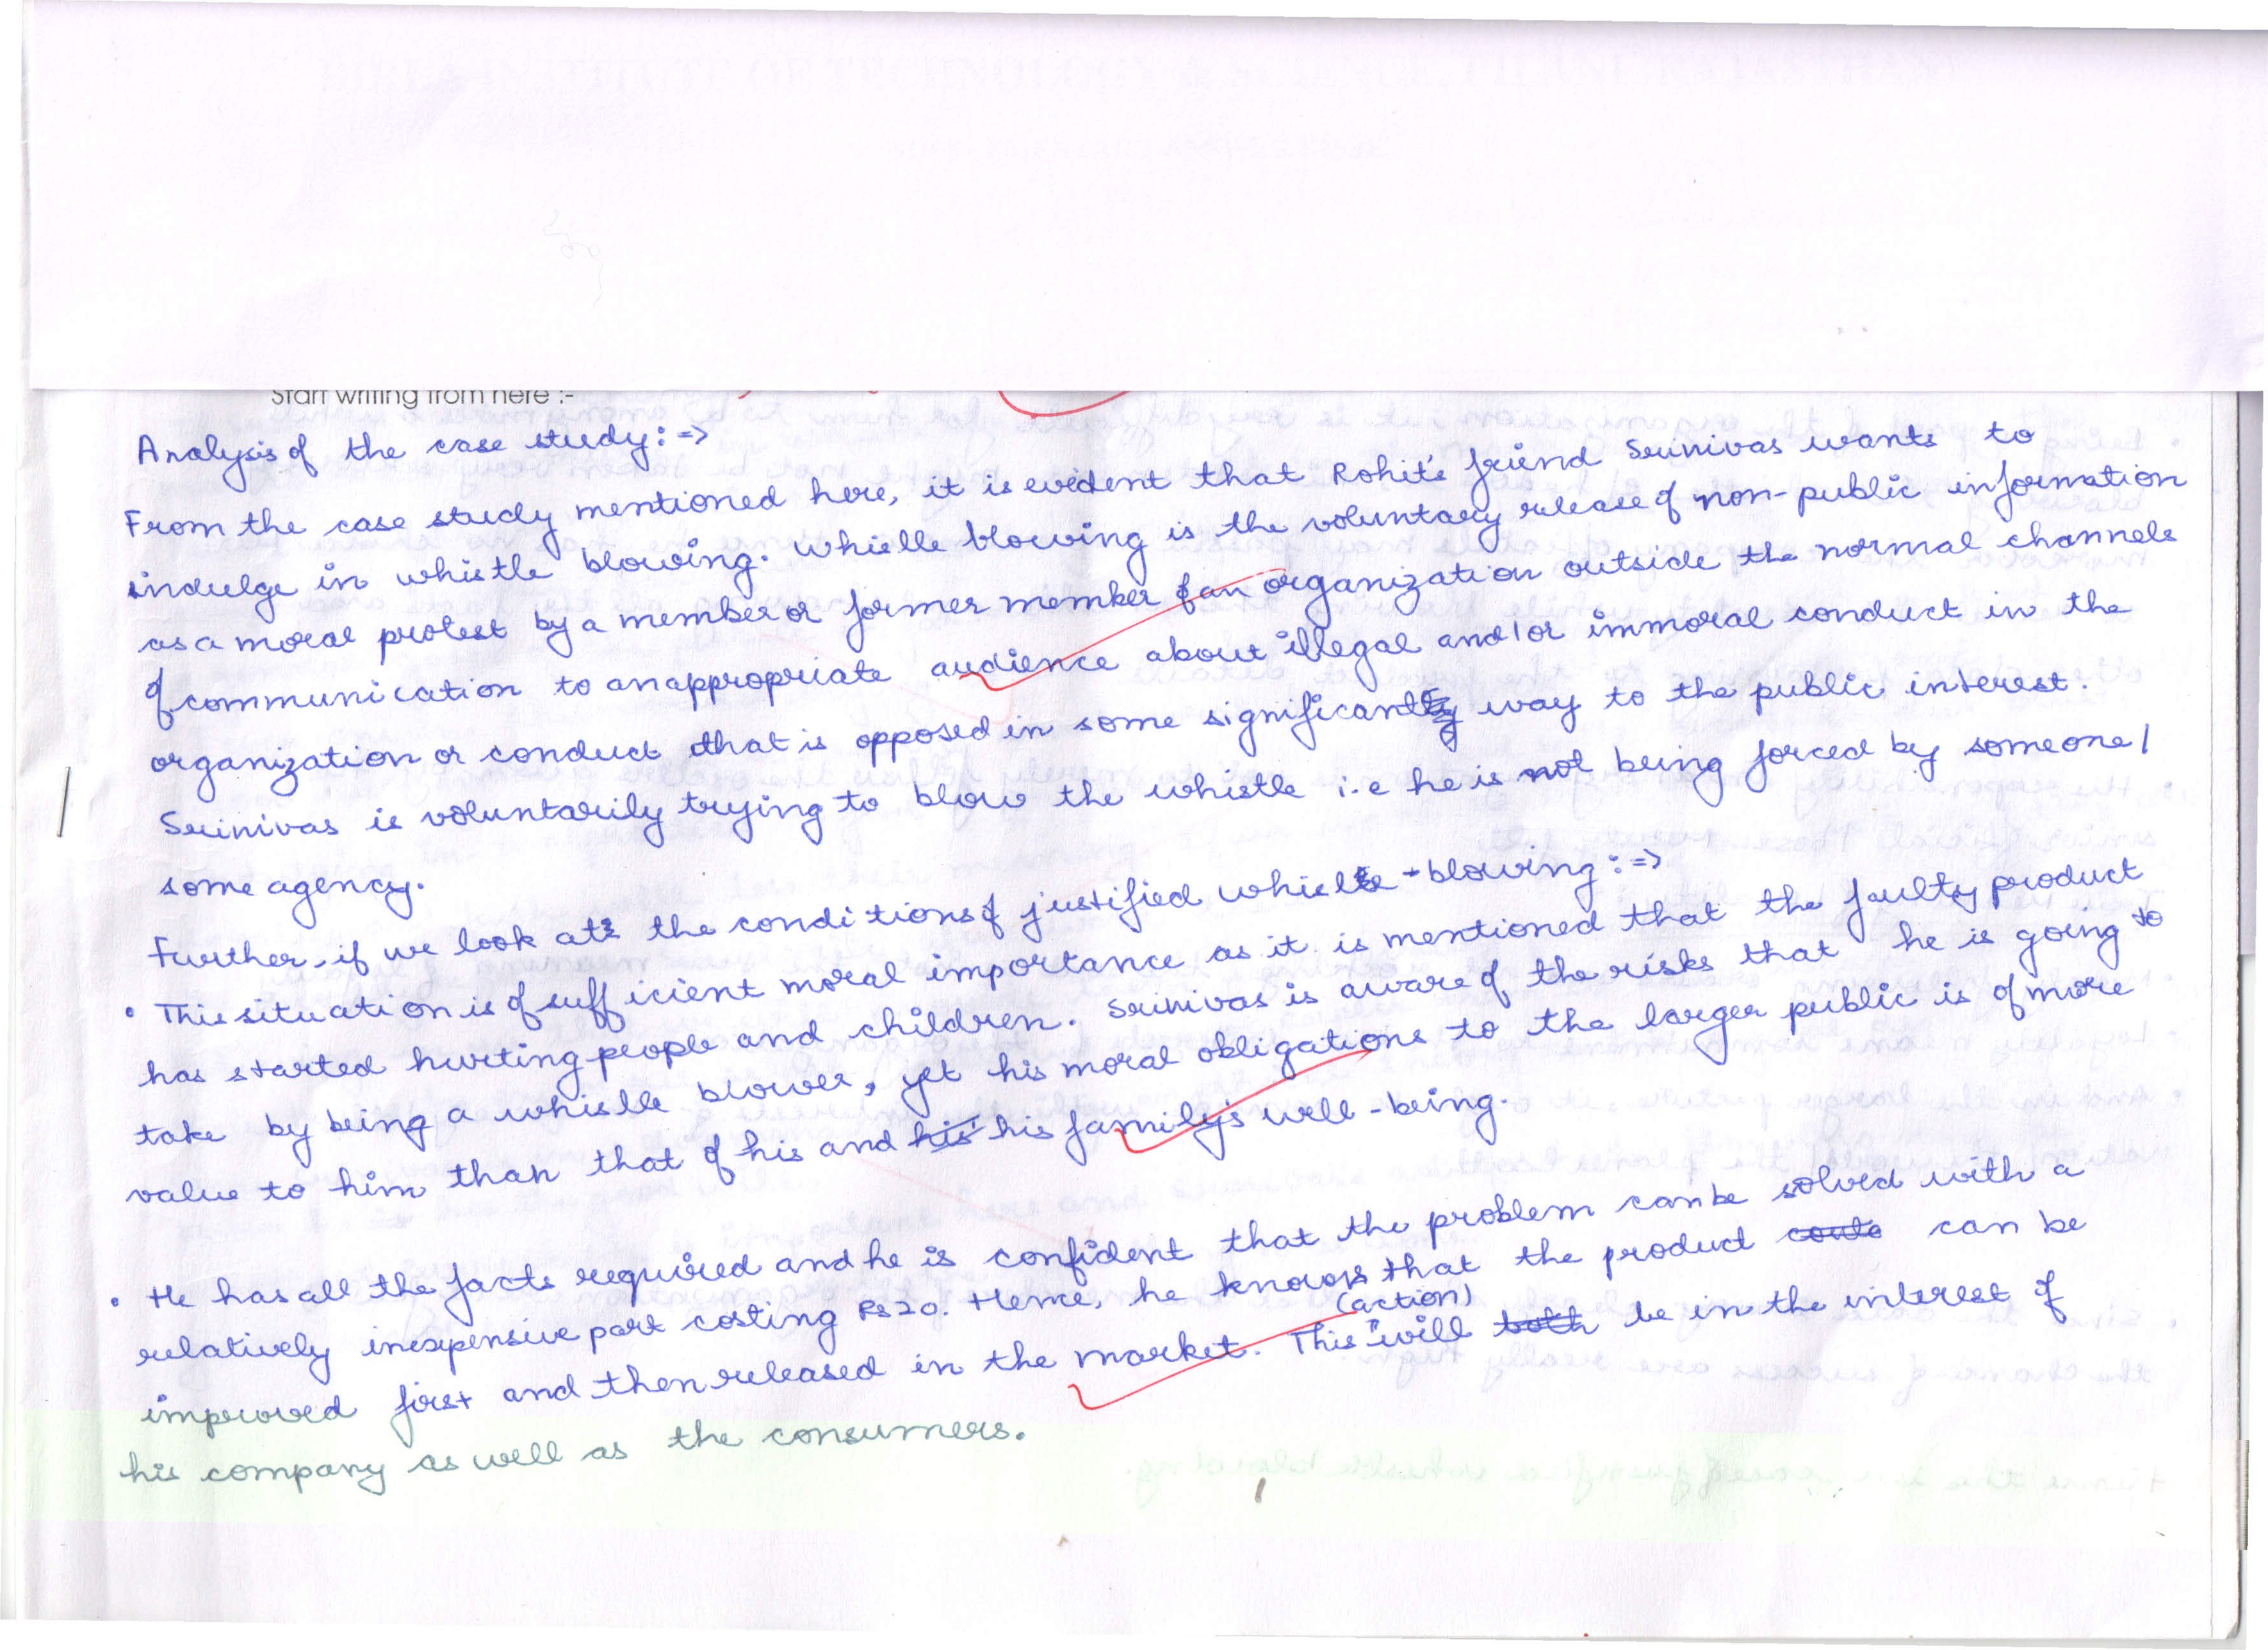 Start writing from here :-
Analysis of the case study : =>
From the case study mentioned here, it is evident that Rohit's friend Srinivas wants to
indulge in whistle blowing. Whistle blowing is the voluntary release of non-public information
as a moral protest by a member or former member of an organization outside the normal channels
of communication to an appropriate audience about illegal and/or immoral conduct in the
organization or conduct that is opposed in some significant way to the public interest.
Srinivas is voluntarily trying to blow the whistle i.e he is not being forced by someone/
some agency.
Further, if we look at the conditions of justified whistle-blowing : =>
• This situation is of sufficient moral importance as it is mentioned that the faulty product
has started hurting people and children. Srinivas is aware of the risks that he is going to
take by being a whistle blower, yet his moral obligations to the larger public is of more
value to him than that of his and his family's well-being.
• He has all the facts required and he is confident that the problem can be solved with a
relatively inexpensive part costing Rs 20. Hence, he knows that the product can be
improved first and then released in the market. This (action) will be in the interest of
his company as well as the consumers.